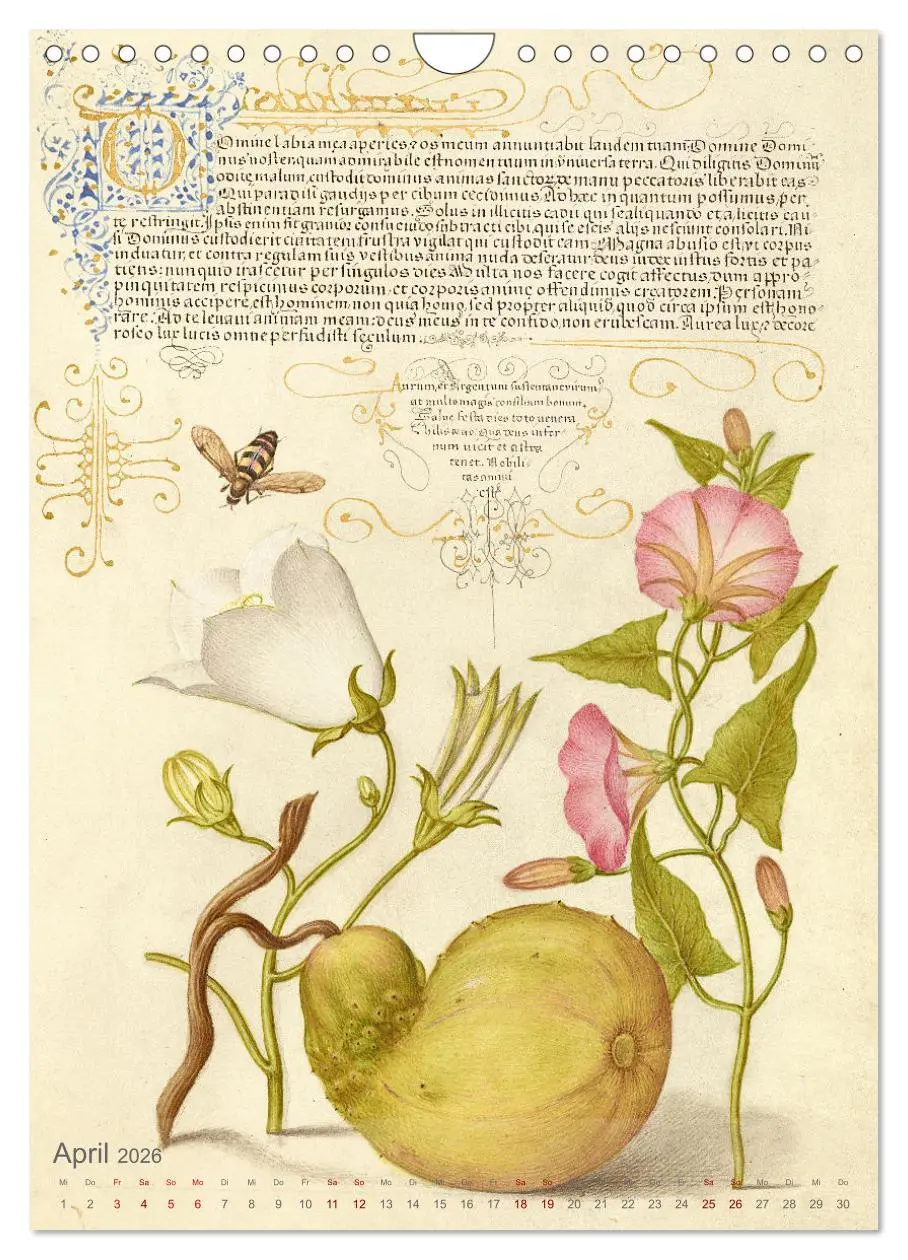 Domine labia mea aperies, et os meum annuntiabit laudem tuam. Domine Domi-
nus noster, quam admirabile est nomen tuum in universa terra. Qui diligitis Dominum
odite malum, custodit dominus animas sanctorum, de manu peccatoris liberabit eas.
Qui paradisi gaudijs per cibum cecidimus, Ad hæc in quantum possumus, per
abstinentiam resurgamus. Solus in illicitis cadit qui se aliquando et a licitis cau-
te restringit. Ipsus enim
Si Dominus custodierit civitatem frustra vigilat qui custodit eam. Magna abusio est, vt corpus
induatur, et contra regulam suis vestibus anima nuda deseratur. Deus iudex iustus fortis et pa-
tiens: nunquid irascetur per singulos dies. Multa nos facere cogit affectus, dum appro-
pinquitatem respicimus corporum, et corporis animæ offendimus creatorem. Personam
hominis accipere, est hominem, non quia homo, sed propter aliquid, quod circa ipsum est hono-
rare. Ad te levavi animam meam: deus meus in te confido, non erubescam. Aurea luce, et decore
roseo lux lucis omne perfudisti seculum.
Aurum, et Argentum
at multo magis consilium bonum.
Salve festa dies toto venera
bilis ævo. Qua deus infer-
num vicit et astra
tenet. Nobili-
tas animi
est
April 2026
Mi Do Fr Sa So Mo Di Mi Do Fr Sa So Mo Di Mi Do Fr Sa So Mo Di Mi Do Fr Sa So Mo Di Mi Do
1 2 3 4 5 6 7 8 9 10 11 12 13 14 15 16 17 18 19 20 21 22 23 24 25 26 27 28 29 30